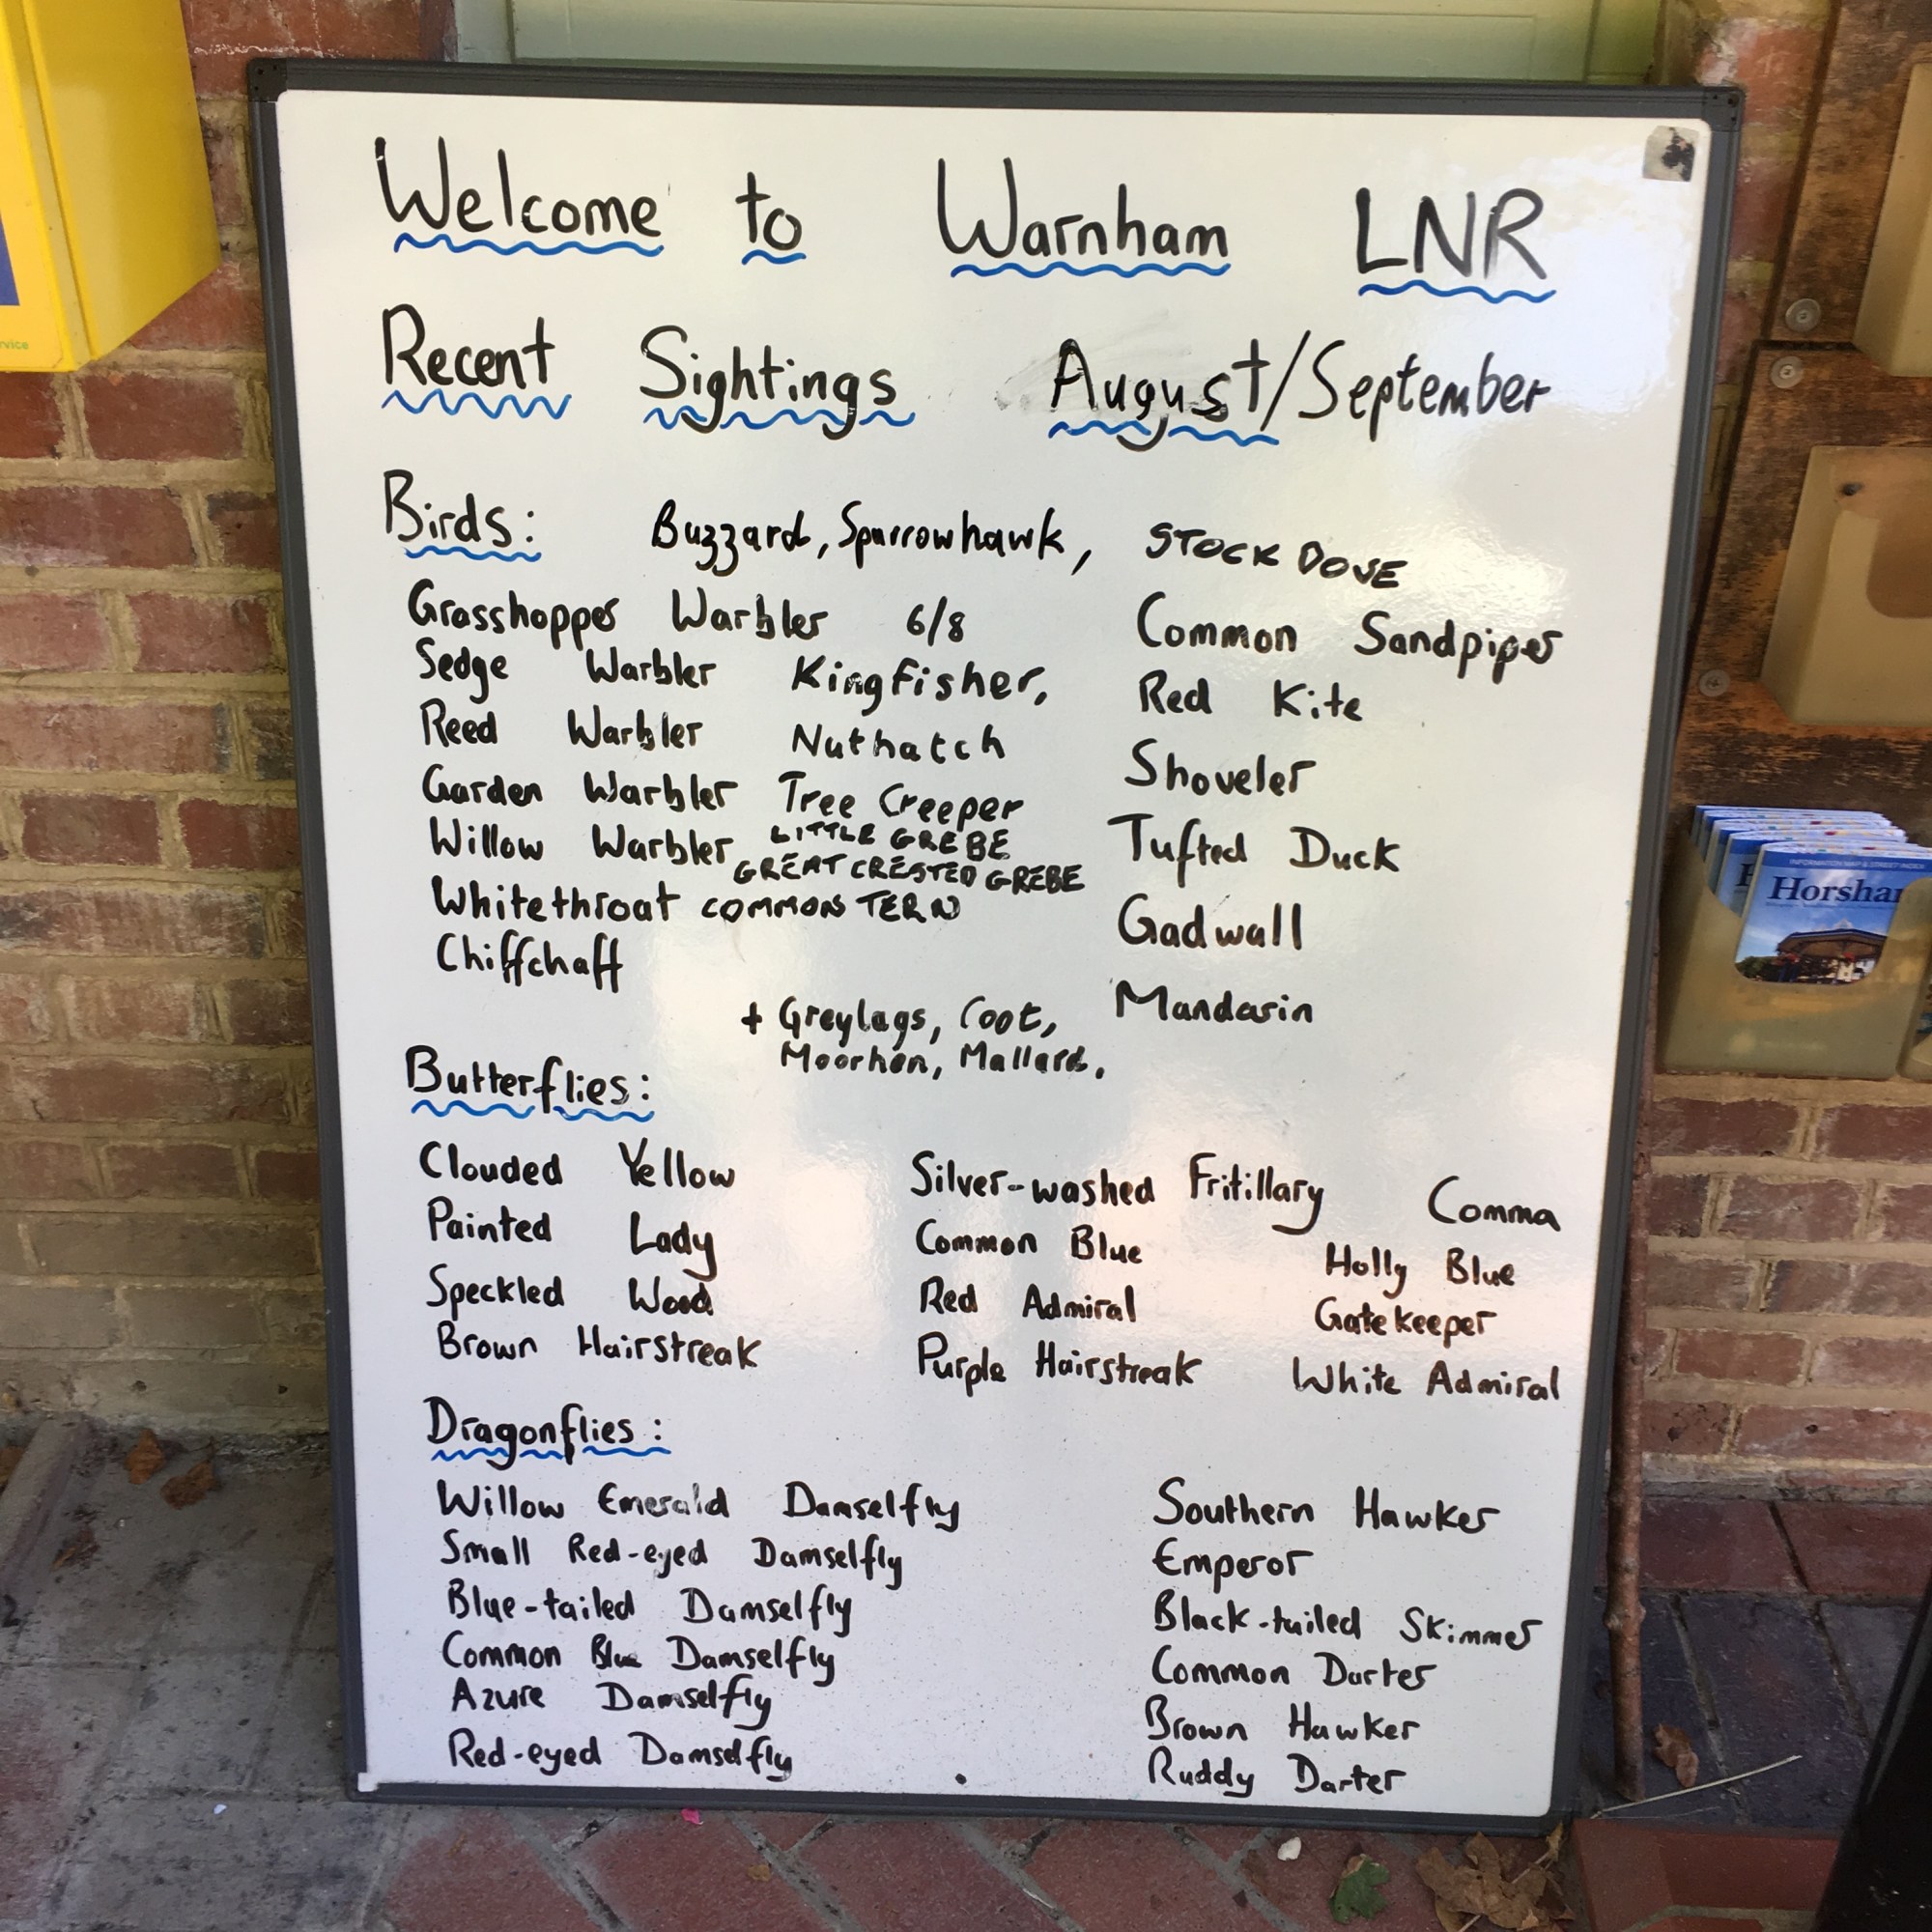 Welcome to Warnham LNR
Recent Sightings August/September
Birds: Buzzard, Sparrowhawk, STOCK DOVE
Grasshopper Warbler 6/8 Common Sandpiper
Sedge Warbler Kingfisher, Red Kite
Reed Warbler Nuthatch Shoveler
Garden Warbler Tree Creeper
Willow Warbler LITTLE GREBE Tufted Duck
GREAT CRESTED GREBE
Whitethroat COMMON TERN Gadwall
Chiffchaff
+ Greylags, Coot, Mandarin
Moorhen, Mallard.
Butterflies:
Clouded Yellow Silver-washed Fritillary Comma
Painted Lady Common Blue Holly Blue
Speckled Wood Red Admiral Gatekeeper
Brown Hairstreak Purple Hairstreak White Admiral
Dragonflies:
Willow Emerald Damselfly Southern Hawker
Small Red-eyed Damselfly Emperor
Blue-tailed Damselfly Black-tailed Skimmer
Common Blue Damselfly Common Darter
Azure Damselfly Brown Hawker
Red-eyed Damselfly Ruddy Darter
INFORMATION MAP & STREET INDEX
Horsha
rvice